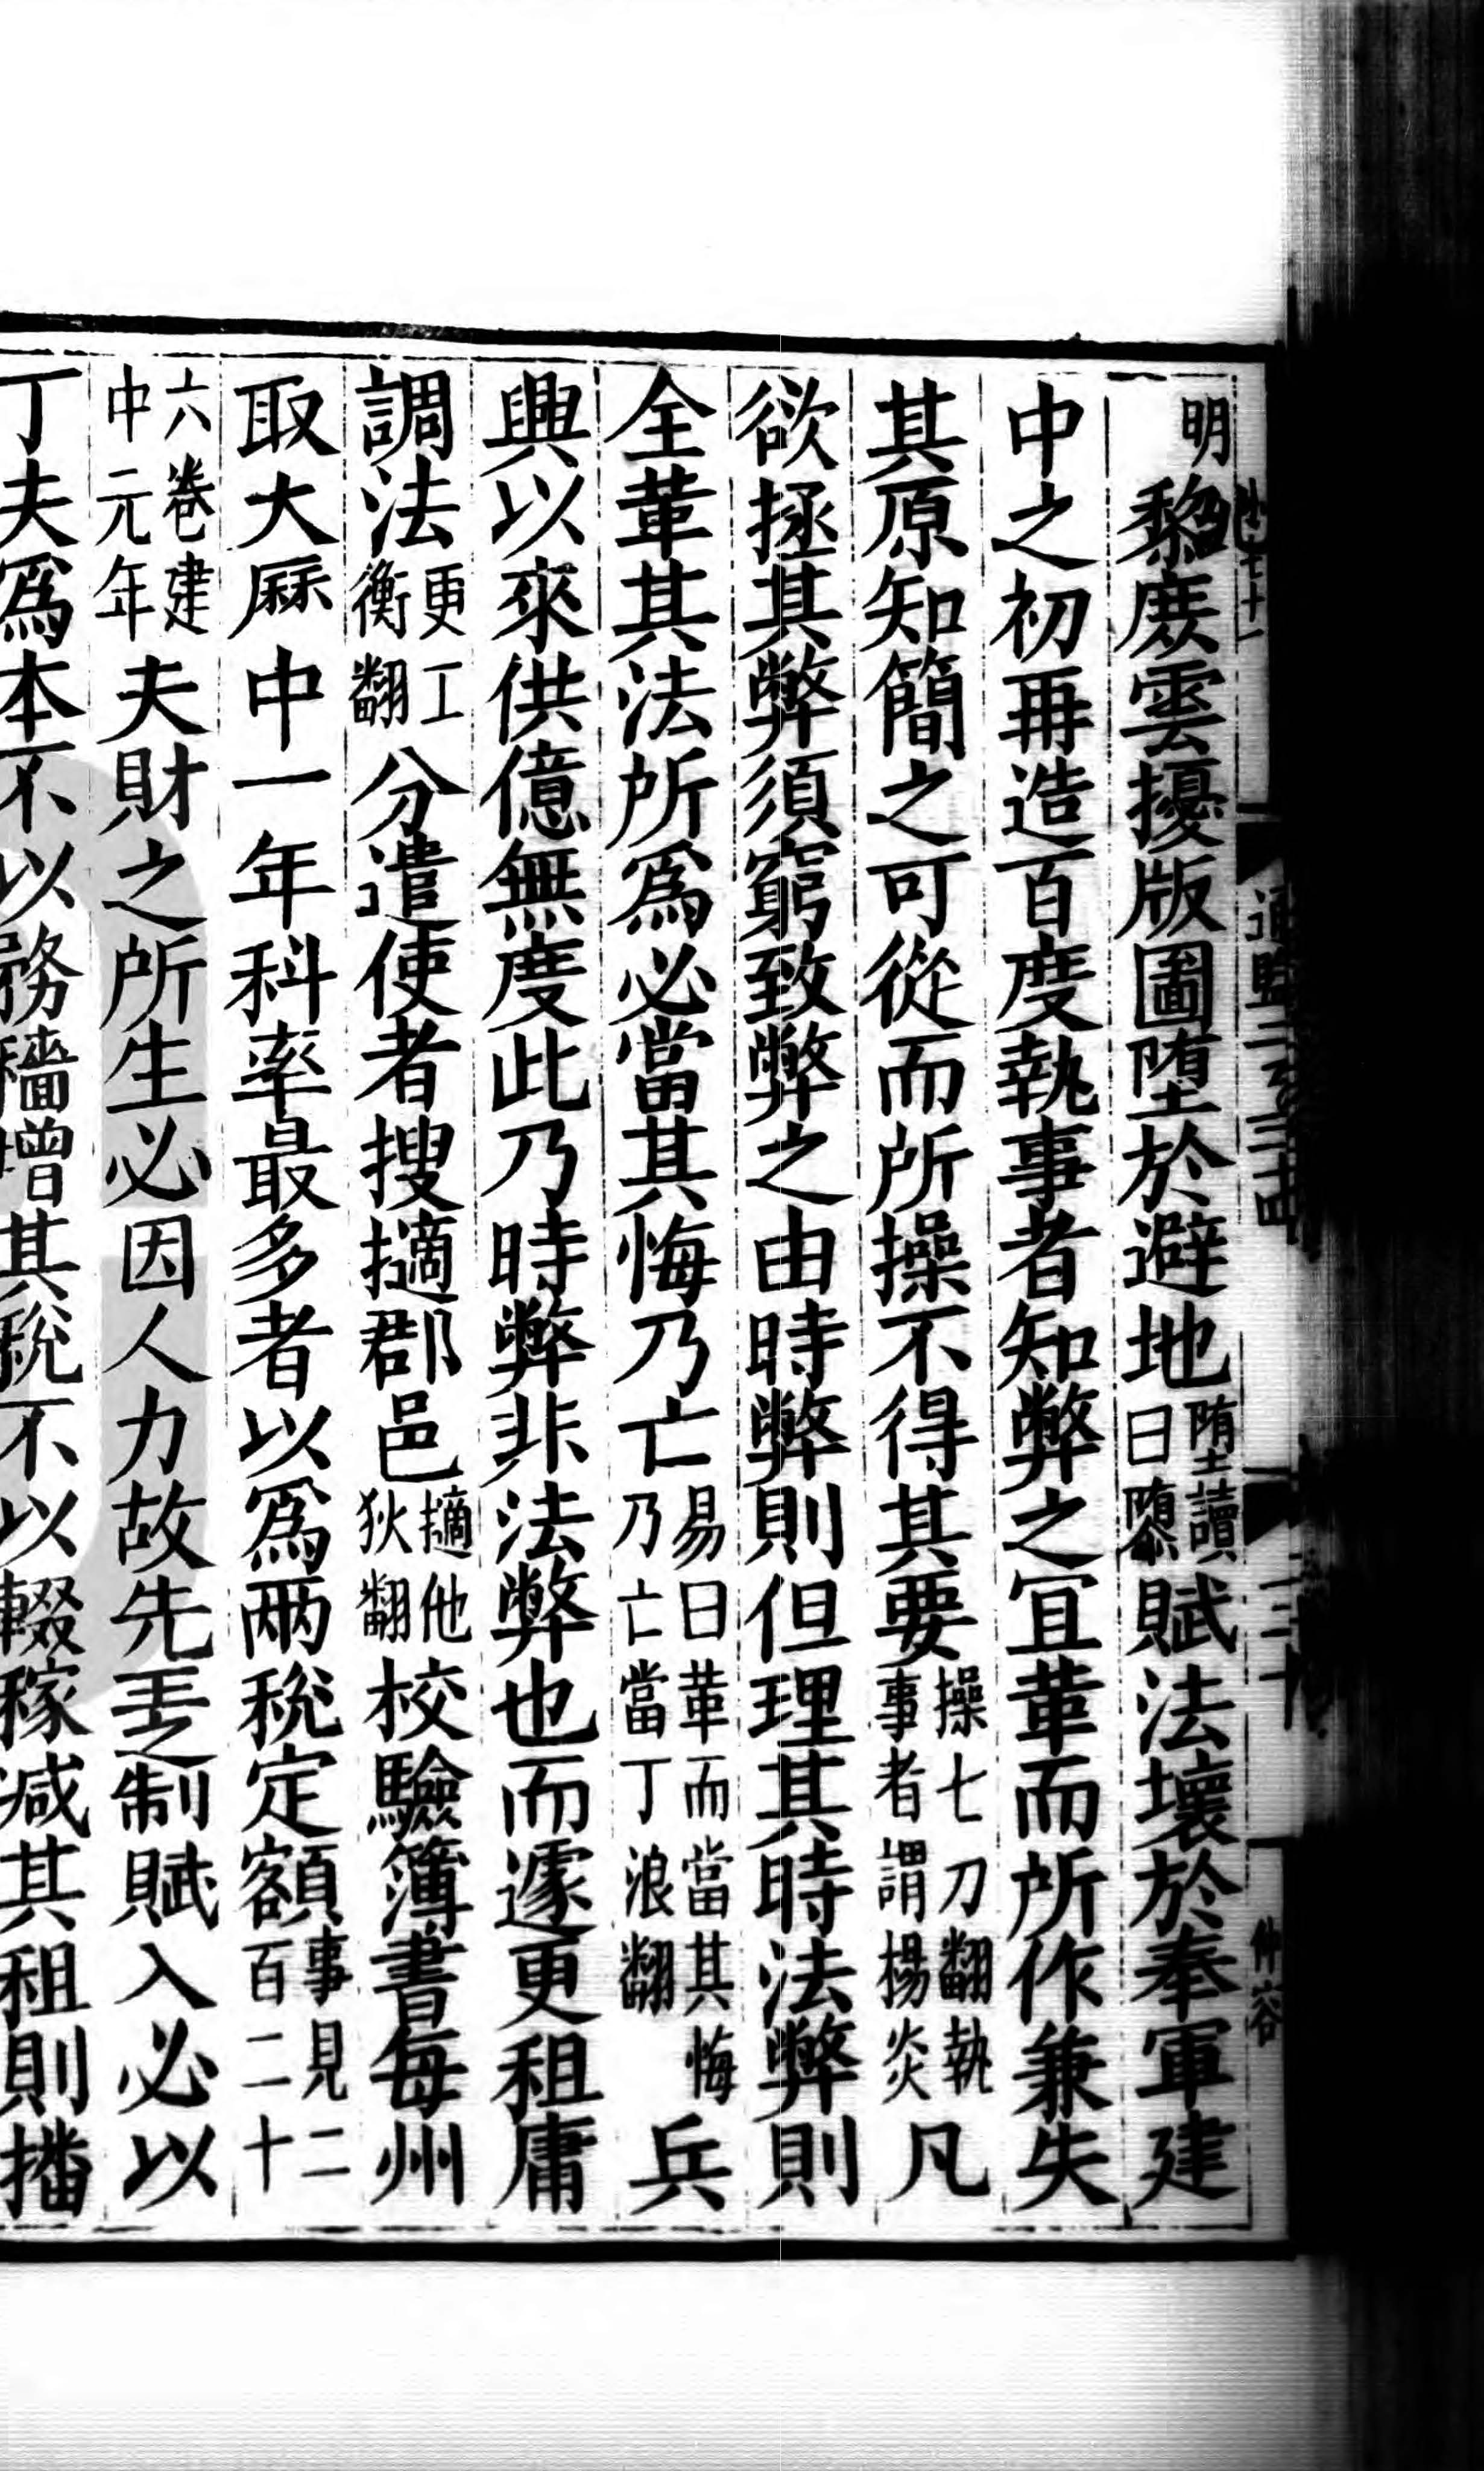 明
黎庶雲擾版圖堕於避地堕讀曰隳賦法壞於奉軍建
中之初再造百度執事者知弊之宜革而所作兼失
其原知簡之可從而所操不得其要操七刀翻執事者謂楊炎凡
欲拯其弊須窮致弊之由時弊則但理其時法弊則
全革其法所爲必當其悔乃亡易曰革而當其悔乃亡當丁浪翻兵
興以來供億無度此乃時弊非法弊也而遽更租庸
調法更工衡翻分遣使者搜擿郡邑擿他狄翻校驗簿書每州
取大厤中一年科率最多者以爲兩稅定額事見二百二十
六卷建中元年夫財之所生必因人力故先王之制賦入必以
丁夫爲本不以務穡增其稅不以輟稼减其租則播